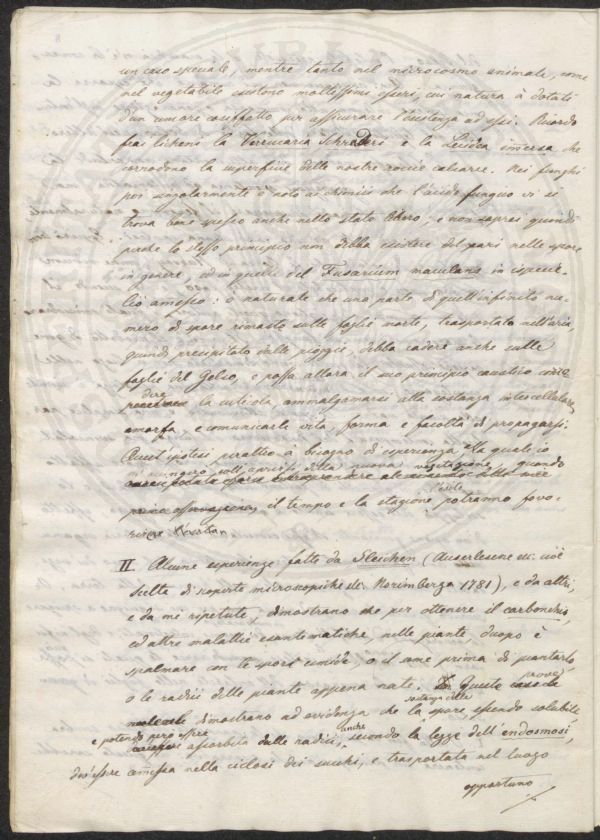 un caso speciale, mentre tanto nel microcosmo animale, come
nel vegetabile esistono moltissimi esseri, cui natura à dotati
d'un umore così fatto per assicurare l'esistenza ad essi. Ricordo
frai licheni la Verrucaria Schraderi e la Lecidea immersa che
corrodono la superficie delle nostre roccie calcaree. Nei funghi
poi singolarmente è noto ai chimici che l'acido fungico vi si
trova bene spesso anche nello stato libero, e non saprei quindi
perche lo stesso principio non debba esistere del pari nelle spore
in genere, ed in quelle del Fusarium maculans in ispecie.
Ciò ammesso: è naturale che una parte di quell'infinito nu-
mero di spore rimaste sulle foglie morte, trasportato nell'aria
quindi precipitato dalle pioggie, debba cadere anche sulle
foglie del Gelso, e possa allora il suo principio caustico corro
dere la cuticola, ammalgamarsi alla sostanza intercellulare
amorfa, e comunicarle vita, forma e facoltà di propagarsi.
Quest'ipotesi peraltro à bisogno di esperienza alla quale io
della nuova vegetazione, quando
il tempo e la stagione potranno favo-
rire
II. Alcune esperienze fatte da Gleichen (Auserlesene ec. cioè
scelta di scoperte microscopiche ec. Norimberga 1781), e da altri,
e da me ripetute, dimostrano che per ottenere il carbonchio,
ed altre malattie esantematiche, nelle piante, duopo è
spalmare con le spore umide, o il seme prima di piantarlo,
o le radici delle piante appena nate. Queste prove
dimostrano ad evidenza che la sostanza delle spore essendo solubile
e potendo però essere assorbita dalle radici, anche secondo la legge dell'endosmosi,
dev'essere ammessa nella ciclosi dei succhi, e trasportata nel luogo
opportuno